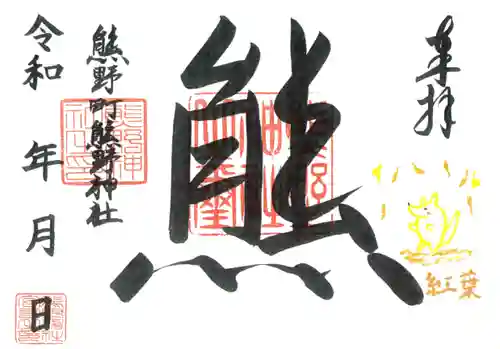 奉拝
紅葉
熊
熊野町熊野神社
令和 年 月 日